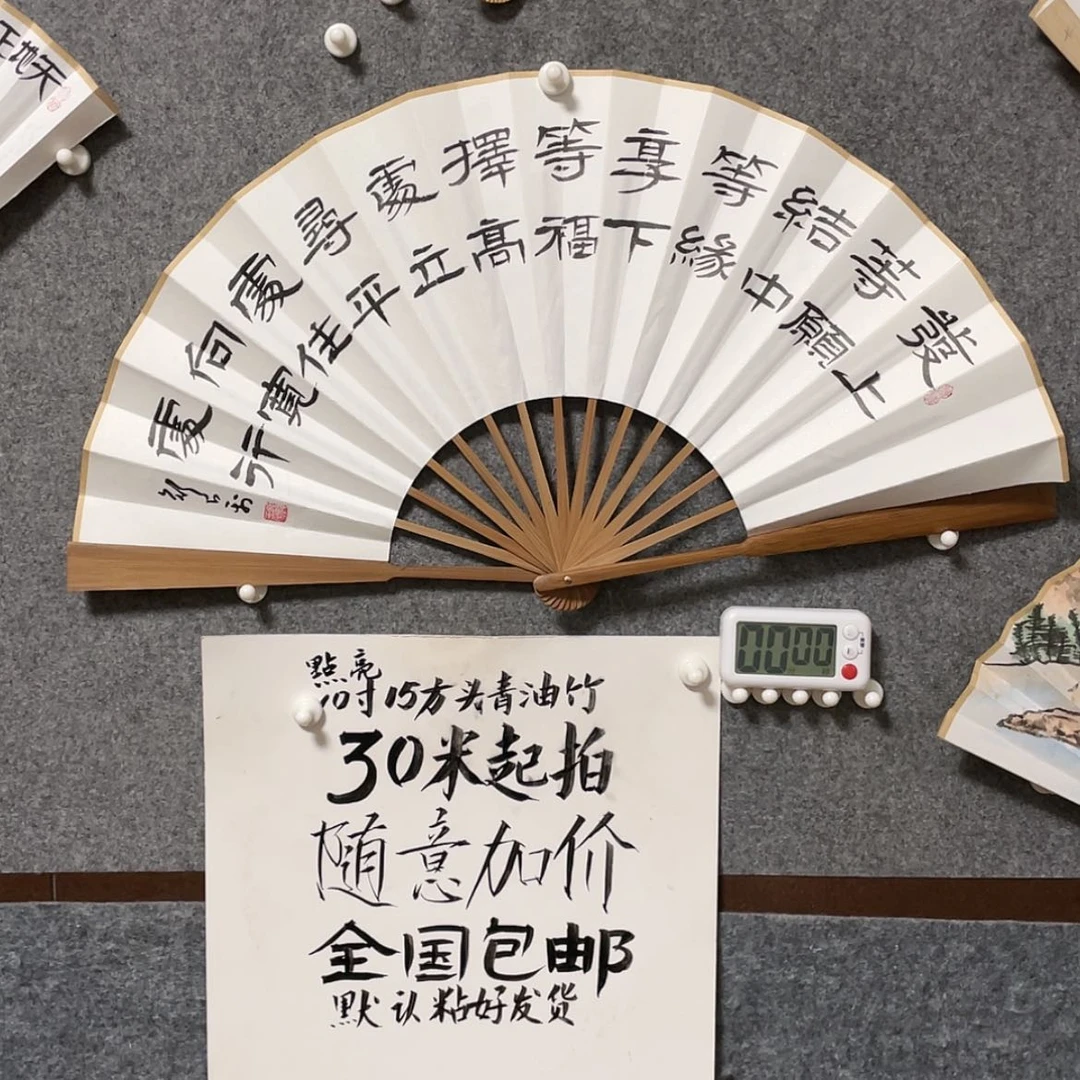 天地正
發上
等願
結中
等緣
享下
等福
擇高
處立
尋平
處住
向寬
處行
00 00
點亮
10寸15方头青油竹
30米起拍
随意加价
全国包邮
默认粘好发货